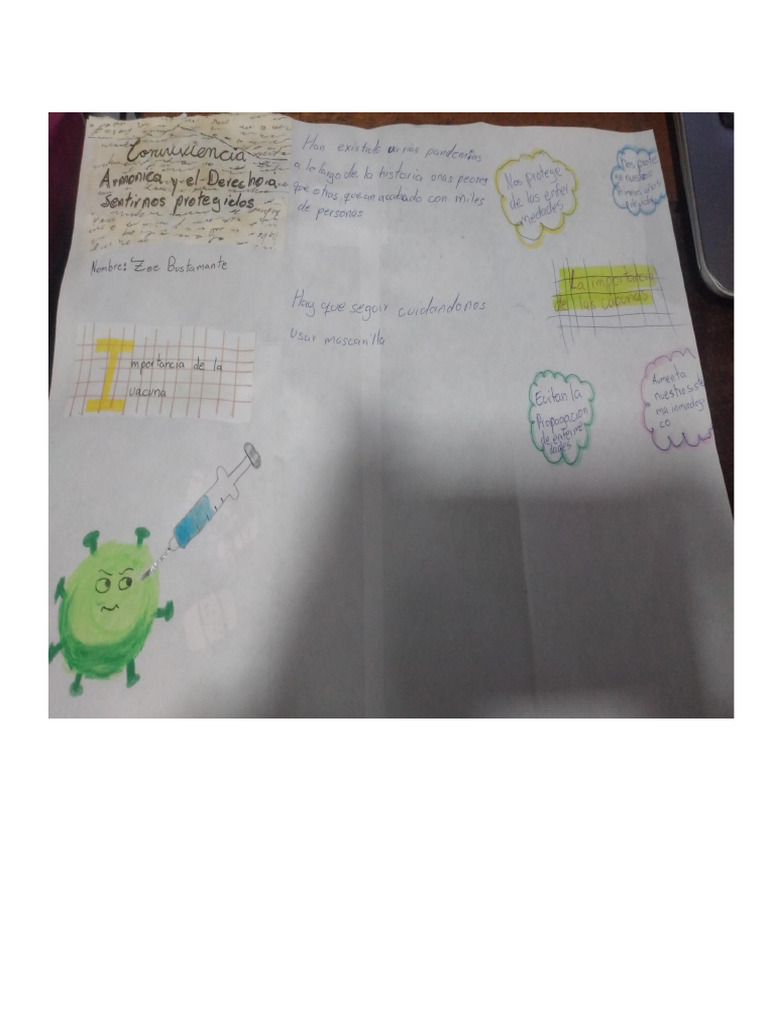 Convivencia
Armonica y el Derecho a
Sentirnos protegidos
Nombre: Zoe Bustamante
Importancia de la
vacuna
Han existido varias pandemias
a lo largo de la historia unas peores
que otras, que an acabado con miles
de personas
Hay que seguir cuidandonos
usar mascarilla
Nos protege
de las enfer
medades
Nos prote
La importancia
de las
Evitan la
Propagacion
de enferme
dades
Aumenta
nuestro siste
ma inmunologi
co